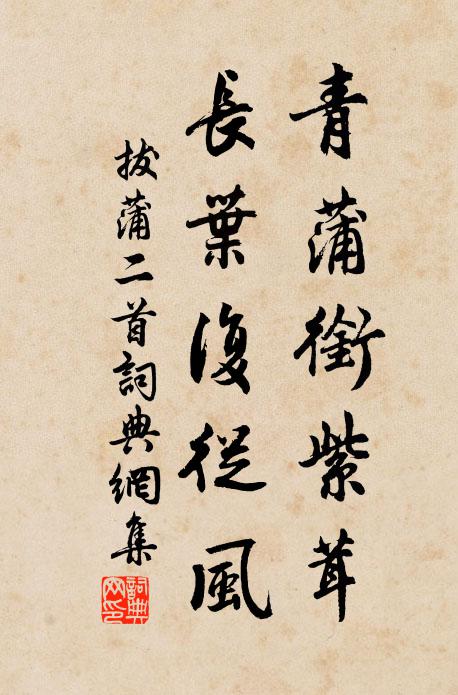 青蒲銜紫茸
長葉復從風
拔蒲二首詞典網集
詞典網印